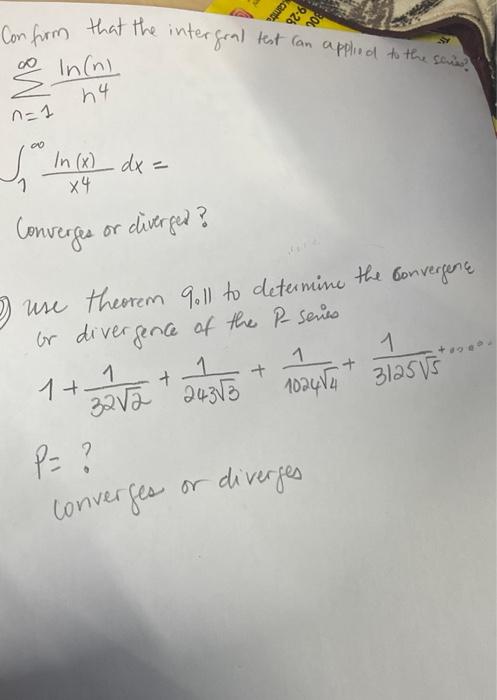 Confirm that the intergral test can applied to the series?
∞
Σ ln(n)
n=1 n4
∫1^∞ ln(x)/x4 dx =
Converges or diverged?
use theorem 9.11 to determine the convergence
or divergence of the P- series
1 + 1/32√2 + 1/243√3 + 1/1024√4 + 1/3125√5 + .....
P= ?
converges or diverges